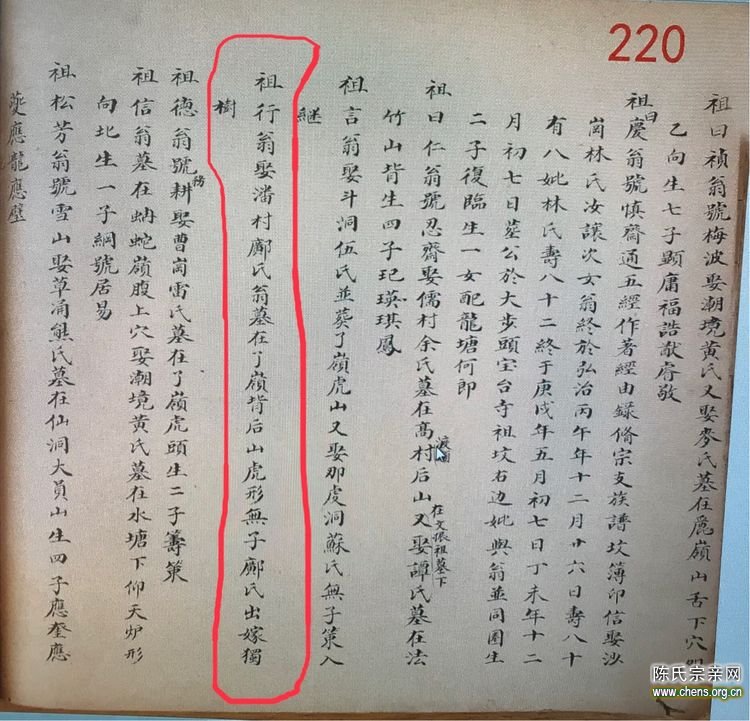 220
祖曰禎翁號梅波娶潮境黄氏又娶麥氏墓在鳯嶺山舌下穴
乙向生七子顕庸福誥猷睿敬
祖曰慶翁號慎齋通五經作著經由録脩宗支族譜坟簿印信娶沙
崗林氏汝讓次女翁終於弘治丙午年十二月廿六日壽八十
有八妣林氏壽八十二終于庚戌年五月初七日丁未年十二
月初七日葬公於大步頭宝台寺祖坟右边妣與翁並同圍生
二子復臨生一女配龍塘何郎
祖曰仁翁號忍齋娶儒村余氏墓在髙村后山又娶譚氏墓在法
在文振祖墓下
竹山背生四子玘瑛琪鳳
祖言翁娶斗洞伍氏並葬了嶺虎山又娶那虔洞蘇氏無子策入
継
祖行翁娶潘村鄺氏翁墓在了嶺背后山虎形無子鄺氏出嫁獨
樹
祖德翁號耕娶曹崗雷氏墓在了嶺虎頭生二子籌策
祖信翁墓在蚺蛇嶺腹上穴娶潮境黄氏墓在水塘下仰天炉形
向北生一子綱號居易
祖松芳翁號雪山娶草涌熊氏墓在仙洞大員山生四子應奎應
夔應龍應璧
陈氏宗亲网
www.chens.org.cn